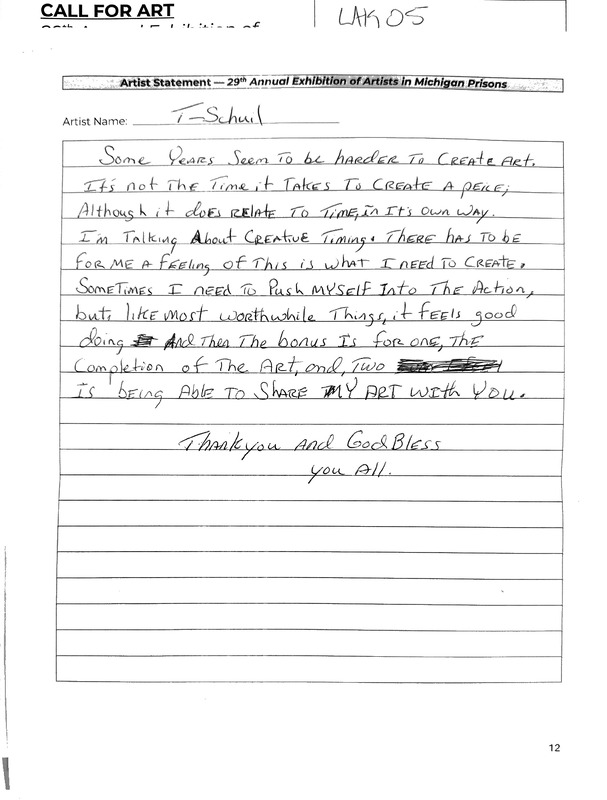 CALL FOR ART
LAK05
Artist Statement — 29th Annual Exhibition of Artists in Michigan Prisons
Artist Name: T-Schuil
Some Years Seem To be harder To Create Art.
It's not The Time it Takes To Create a peice;
Although it does relate To Time, in It's own way.
I'm Talking About Creative Timing. There has to be
for me a feeling of This is what I need to create.
Sometimes I need to Push myself Into The Action,
but, like most worthwhile Things, it feels good
doing And Then The bonus Is for one, the
Completion of The Art, and, Two
is being Able to Share My Art with you.
Thankyou and God Bless
you All.
12